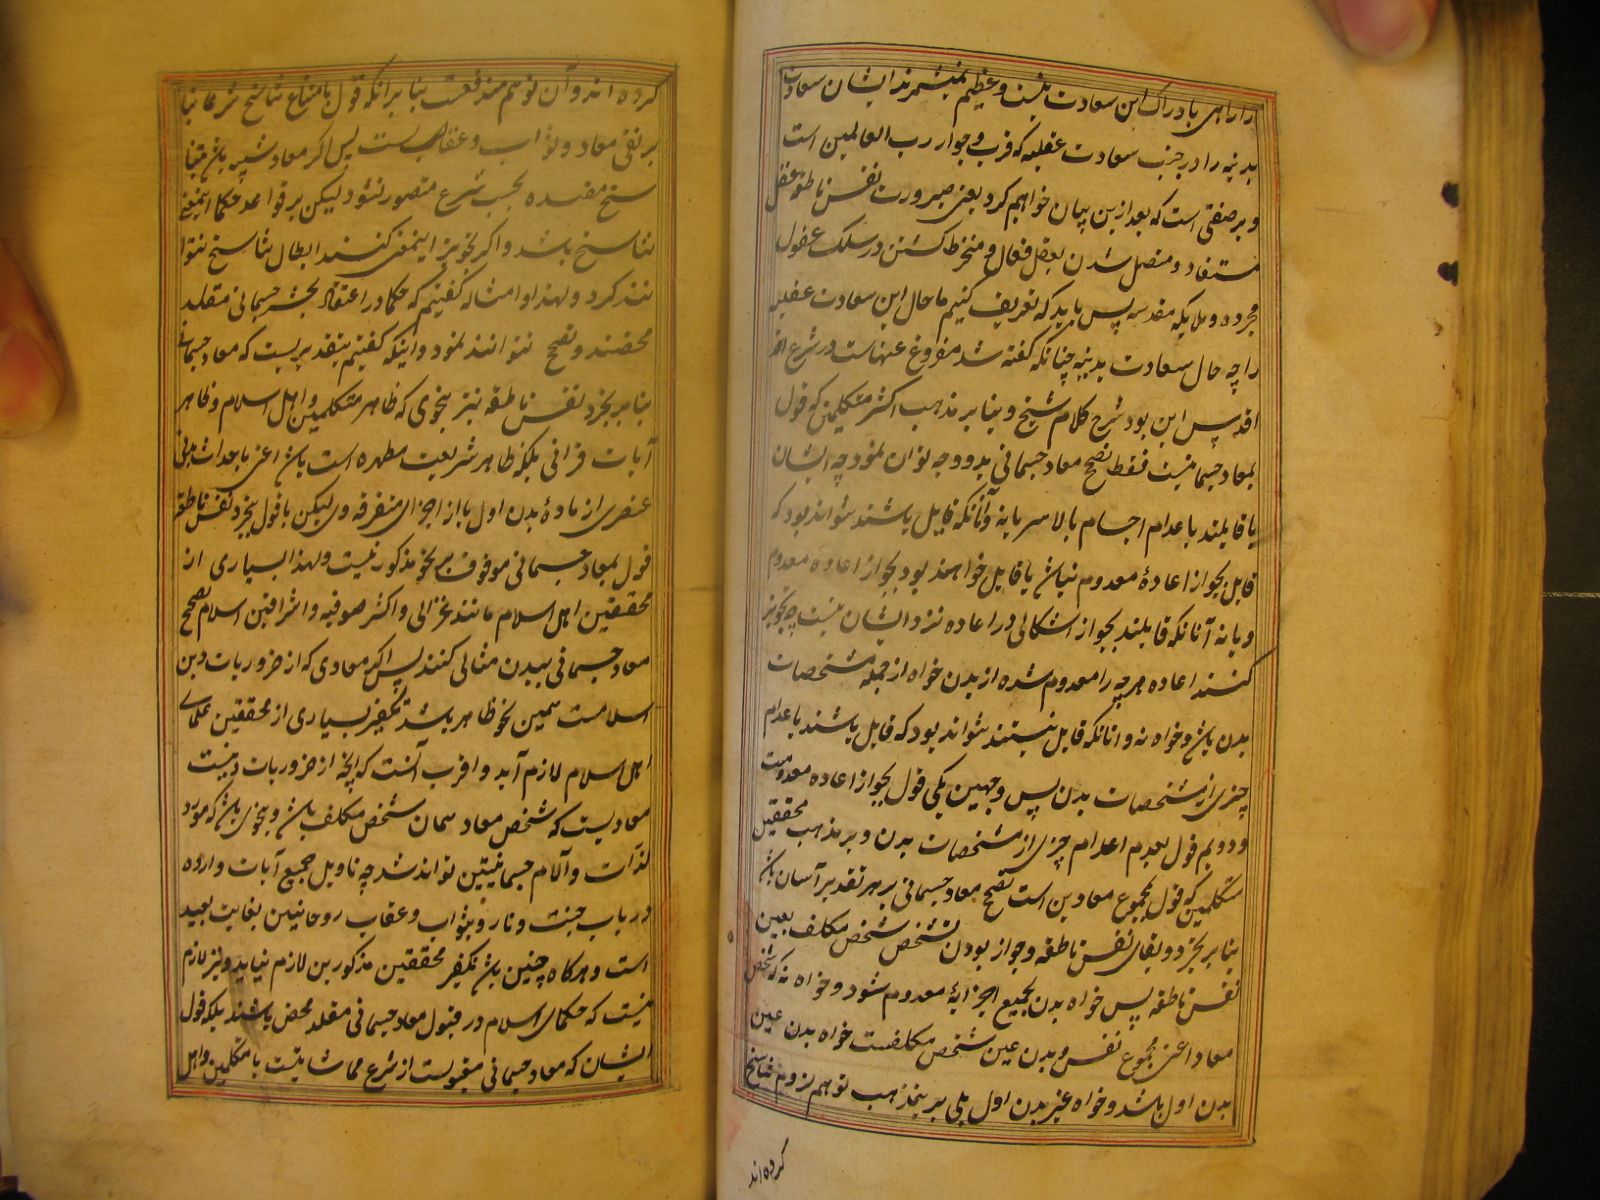 را راهی بادراک این سعادت نیست و عظیم نمیشمرند ایشان سعادت
بدنیه را در جنب سعادت عقلیه که قرب و جوار رب العالمین است
و بر صفتی است که بعد ازین بیان خواهیم کرد یعنی صیرورت نفس ناطقه عقل
مستفاد و متصل شدن بعقل فعال و منخرط گشتن در سلک عقول
مجرده و ملایکه مقدسه پس باید که تعریف کنیم ما حال این سعادت عقلیه
را چه حال سعادت بدنیه چنانکه گفته شد مفروغ عنهاست در شرع انتهی
افه پس این بود شرح کلام شیخ و بنا بر مذهب اکثر متکلمین که قول
بمعاد جسمانیست فقط تصحیح معاد جسمانی بدو وجه توان نمود چه ایشان
یا قایلند باعدام اجسام بالاسر یا نه و آنانکه قایل باشند تواند بود که
قایل بجواز اعادهٔ معدوم نباشند یا قایل خواهند بود بجواز اعاده معدوم
و یا نه آنانکه قایلند بجواز اشکالی در اعاده نزد ایشان نیست چه تجویز
کنند اعاده هر چه را معدوم شده از بدن خواه از جمله مشخصات
بدن باشد و خواه نه و انانکه قایل نیستند تواند بود که قایل باشند باعدام
چیزی از مشخصات بدن پس وجهین یکی قول بجواز اعاده معدومست
و دویم قول بعدم اعدام چیزی از مشخصات بدن و بر مذهب محققین
متکلمین که قول بمجموع معادین است تصحیح معاد جسمانی بر هر تقدیر آسان باشد
بنا بر تجرد و بقای نفس ناطقه و جواز بودن تشخص شخص مکلف بعین
نفس ناطقه پس خواه بدن بجمیع اجزایهٔ معدوم شود و خواه نه که شخص
معاد اعنی مجموع نفس و بدن عین شخص مکلفست خواه بدن عین
بدن اول باشد و خواه غیر بدن اول بلی برینمذهب توهم لزوم تناسخ
کرده اند
کرده اند و آن توهم مندفعست بنا بر انکه قول بامتناع تناسخ شرعا بنا
بر نفی معاد و ثواب و عقابست پس اگر معاد شبیه باشد بتنا
سخ مفسده بحسب شرع متصور نشود لیکن بر قواعد حکما اینمعنی
تناسخ باشد و اگر تجویز اینمعنی کنند ابطال تناسخ نتوا
نند کرد و لهذا و امثاله گفتیم که حکما در اعتقاد بحشر جسمانی مقلد
محضند و تصحیح نتوانند نمود و اینکه گفتیم بتقدیریست که معاد جسمانی
بنا بر تجرد نفس ناطقه نیز بنحوی که ظاهر متکلمین و اهل اسلام و ظاهر
آیات قرانی بلکه ظاهر شریعت مطهره است باشد اعنی باحداث بدنی
عنصری از مادهٔ بدن اول یا از اجزای متفرقه وی لیکن با قول بتجرد نفس ناطقه
قول بمعاد جسمانی موقوف بر نحو مذکور نیست و لهذا بسیاری از
محققین اهل اسلام مانند غزالی و اکثر صوفیه و اشراقین اسلام تصحیح
معاد جسمانی ببدن مثالی کنند پس اگر معادی که از ضروریات دین
اسلامست همین نحو ظاهر باشد تکفیر بسیاری از محققین علمای
اهل اسلام لازم آید و اقرب آنست که آنچه از ضروریات دینست
معادیست که شخص معاد همان شخص مکلف باشد و بنحوی باشد که مورد
لذات و آلام جسمانیتین تواند شد چه تاویل جمیع آیات وارده
در باب جنت و نار و بثواب و عقاب روحانیین بغایت بعید
است و هرگاه چنین باشد تکفیر محققین مذکورین لازم نیاید و نیز لازم
نیست که حکمای اسلام در قبول معاد جسمانی مقلد محض باشند بلکه قول
ایشان که معاد جسمانی مقبولست از شرع مماشاتیست با متکلمین و اهل